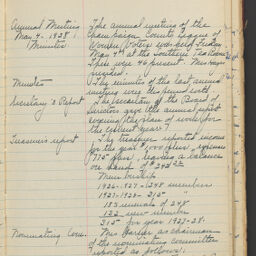 Annual Meeting The annual meeting of the
May 4 - 1928 Champaign County League of
Minutes Women Voters was held Friday
May 4th at the Southern Tea Room
There were 46 present.
presided.
Minutes The minutes of the last annual
meeting were then read
Secretary's Report The Secretary of the Board of
Directors gave the annual report
reviewing the plan of work for
the current year.
Treasurers report The Treasurer reported income
for the year $1,000
775 leaving a balance
on hand of
Membership
1926-1927 - 248 members
1927-1928 - 315
183 renewals of 248
132 new members
315 for year 1927-28.
Nominating Com. Mrs as chairman
of the nominating committee
reported as follows: